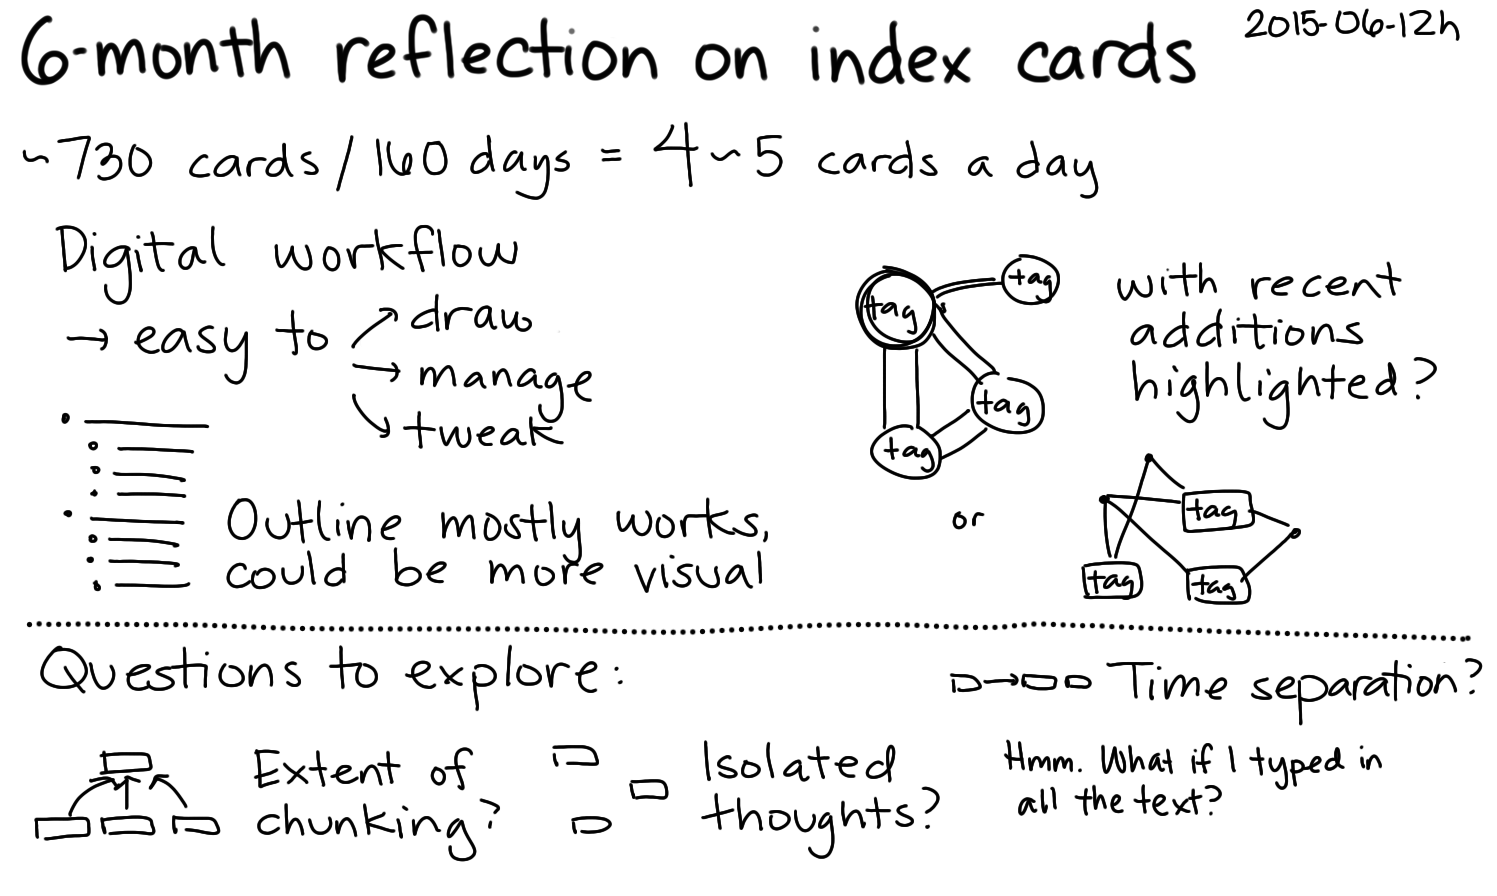 6-month reflection on index cards
2015-06-12h
~730 cards / 160 days = 4~5 cards a day
Digital workflow
→ easy to
→ draw
→ manage
→ tweak
Outline mostly works,
could be more visual
tag
tag
tag
tag
with recent
additions
highlighted?
or
tag
tag
tag
Questions to explore:
Extent of
chunking?
Isolated
thoughts?
Time separation?
Hmm. What if I typed in
all the text?